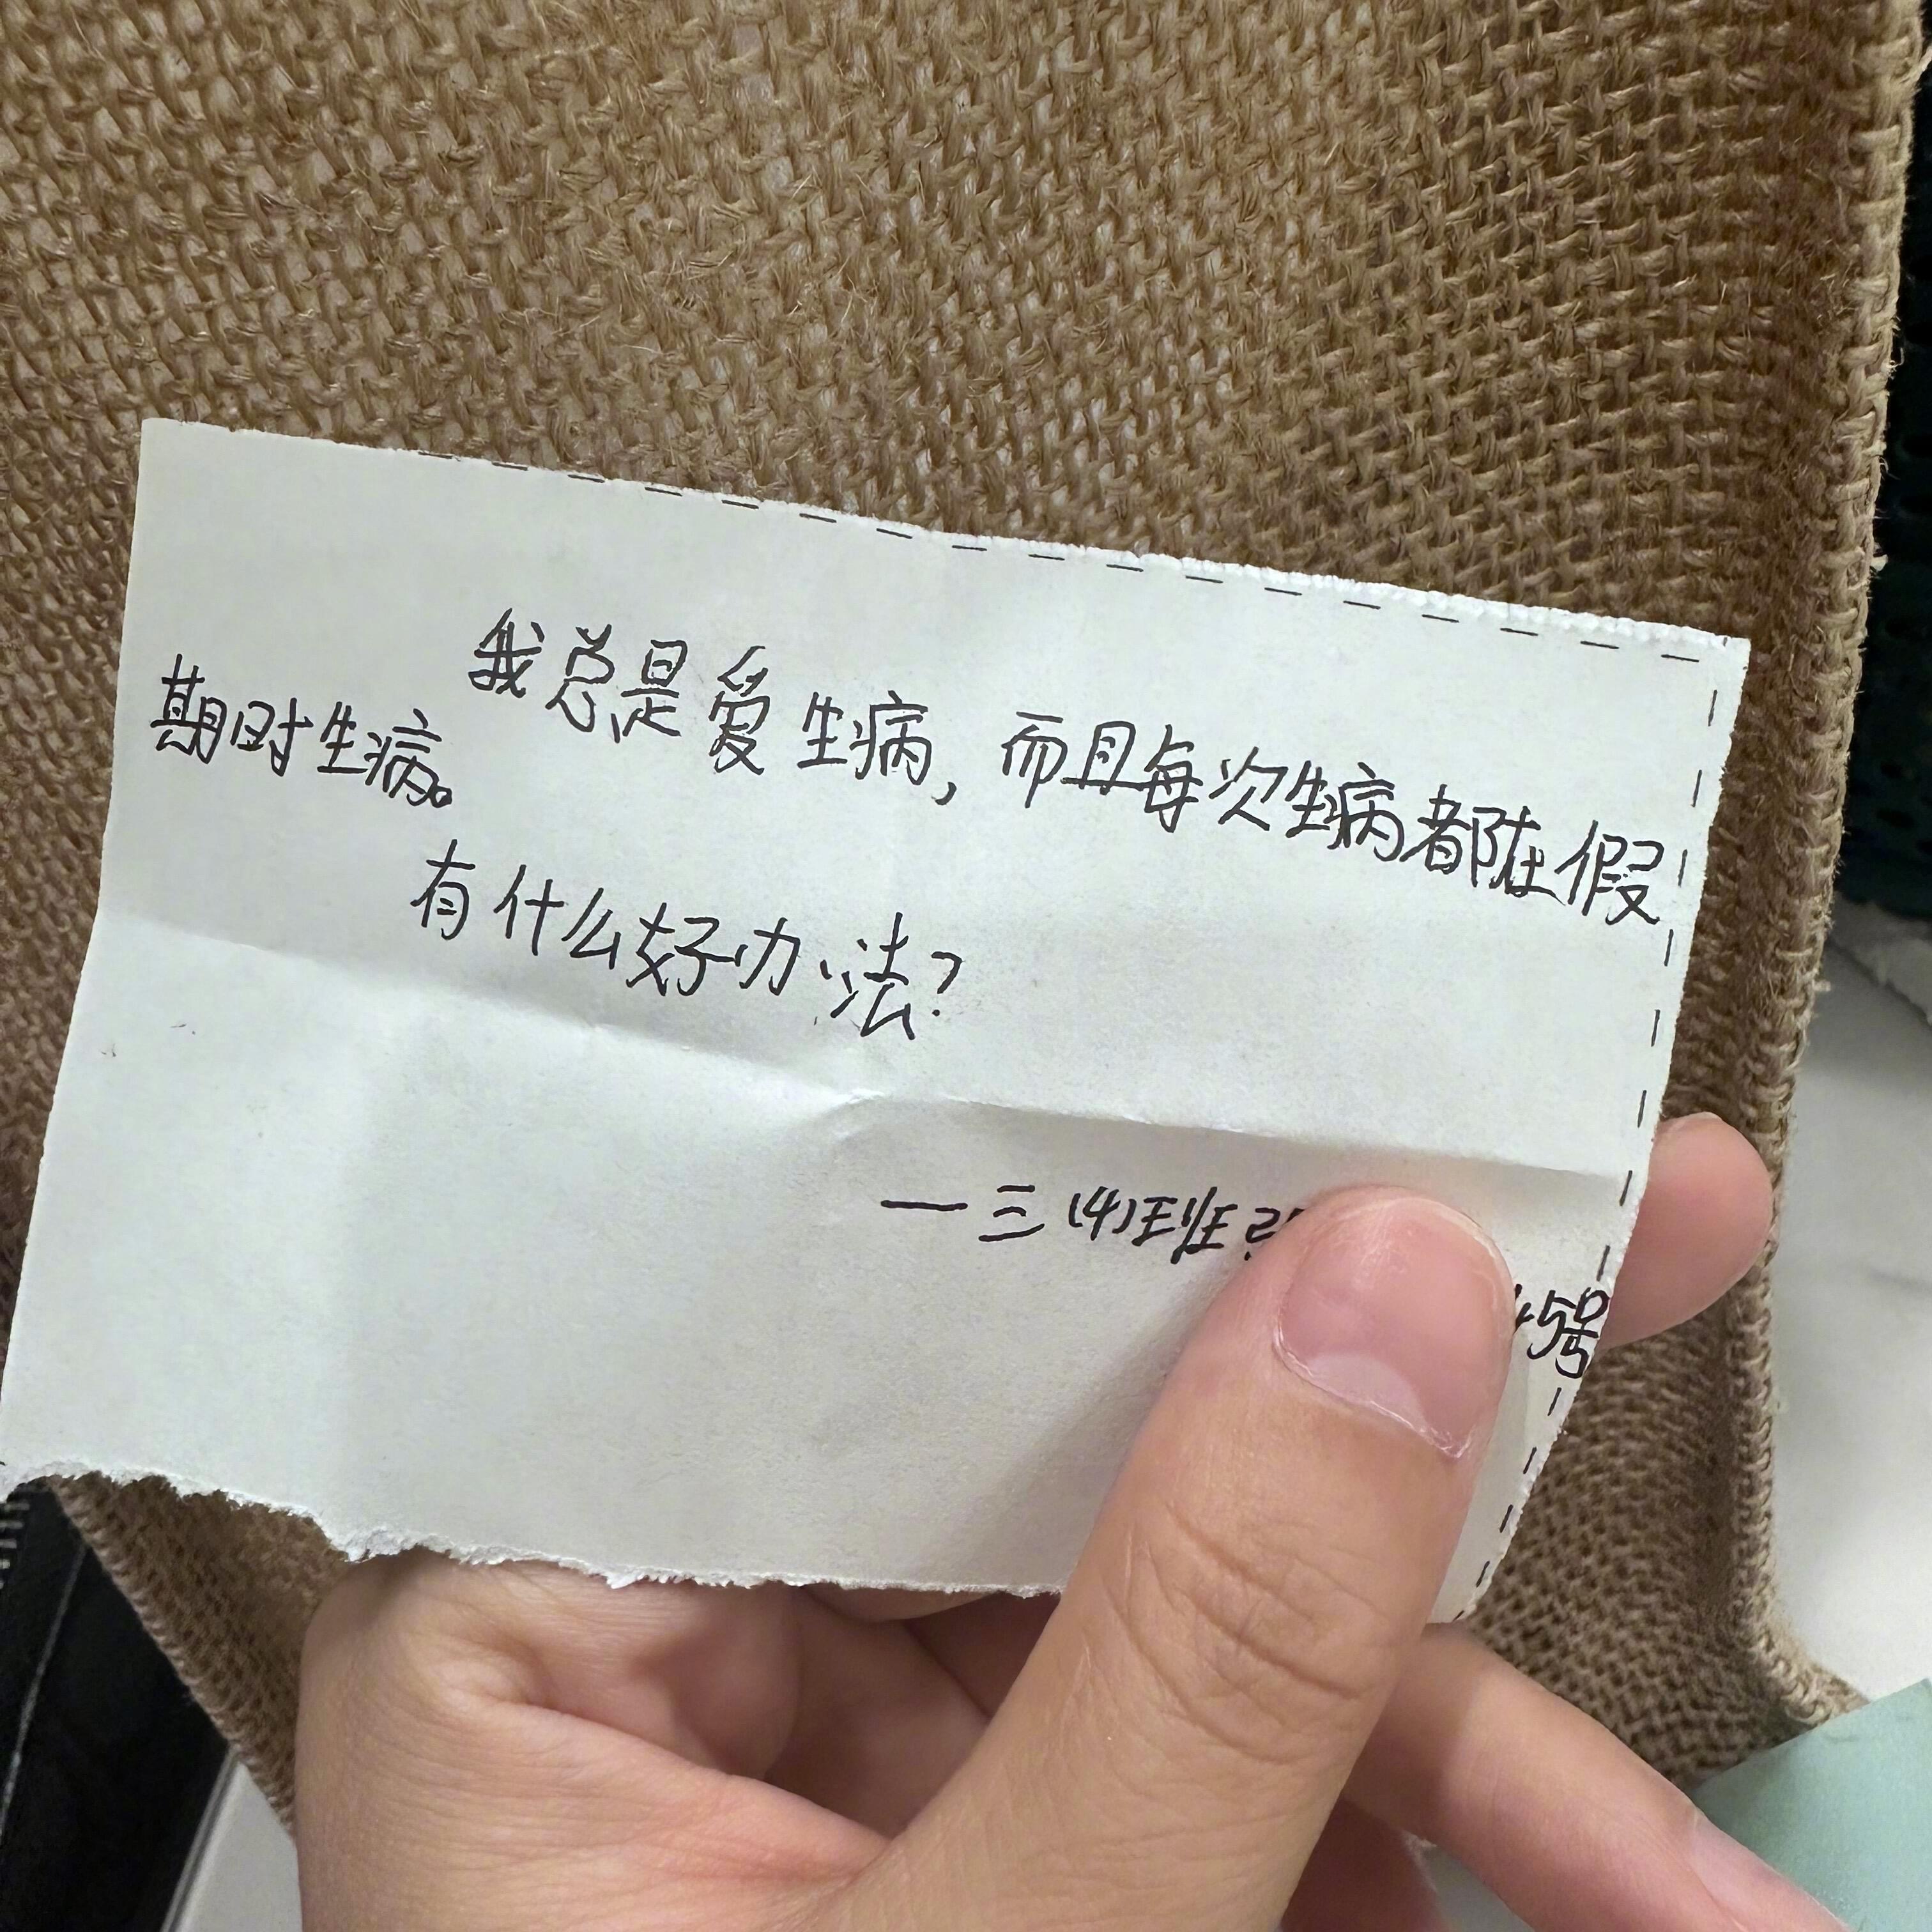 我总是爱生病，而且每次生病都在假
期时生病。
有什么好办法？
—三(4)班
45号